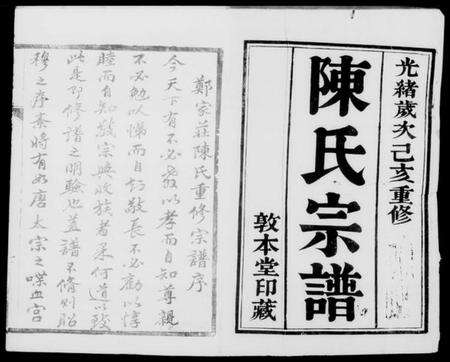 光緒歲次己亥重修
陳氏宗譜
敦本堂印藏
鄭家莊陳氏重修宗譜序
今天下有不必敎以孝而自知尊親
不必勉以悌而自知敬長不必勸以惇
睦而自知敬宗與收族者果何道以致
此是即修譜之明驗也蓋譜不修則昭
穆之序紊將有如唐太宗之喋血宮